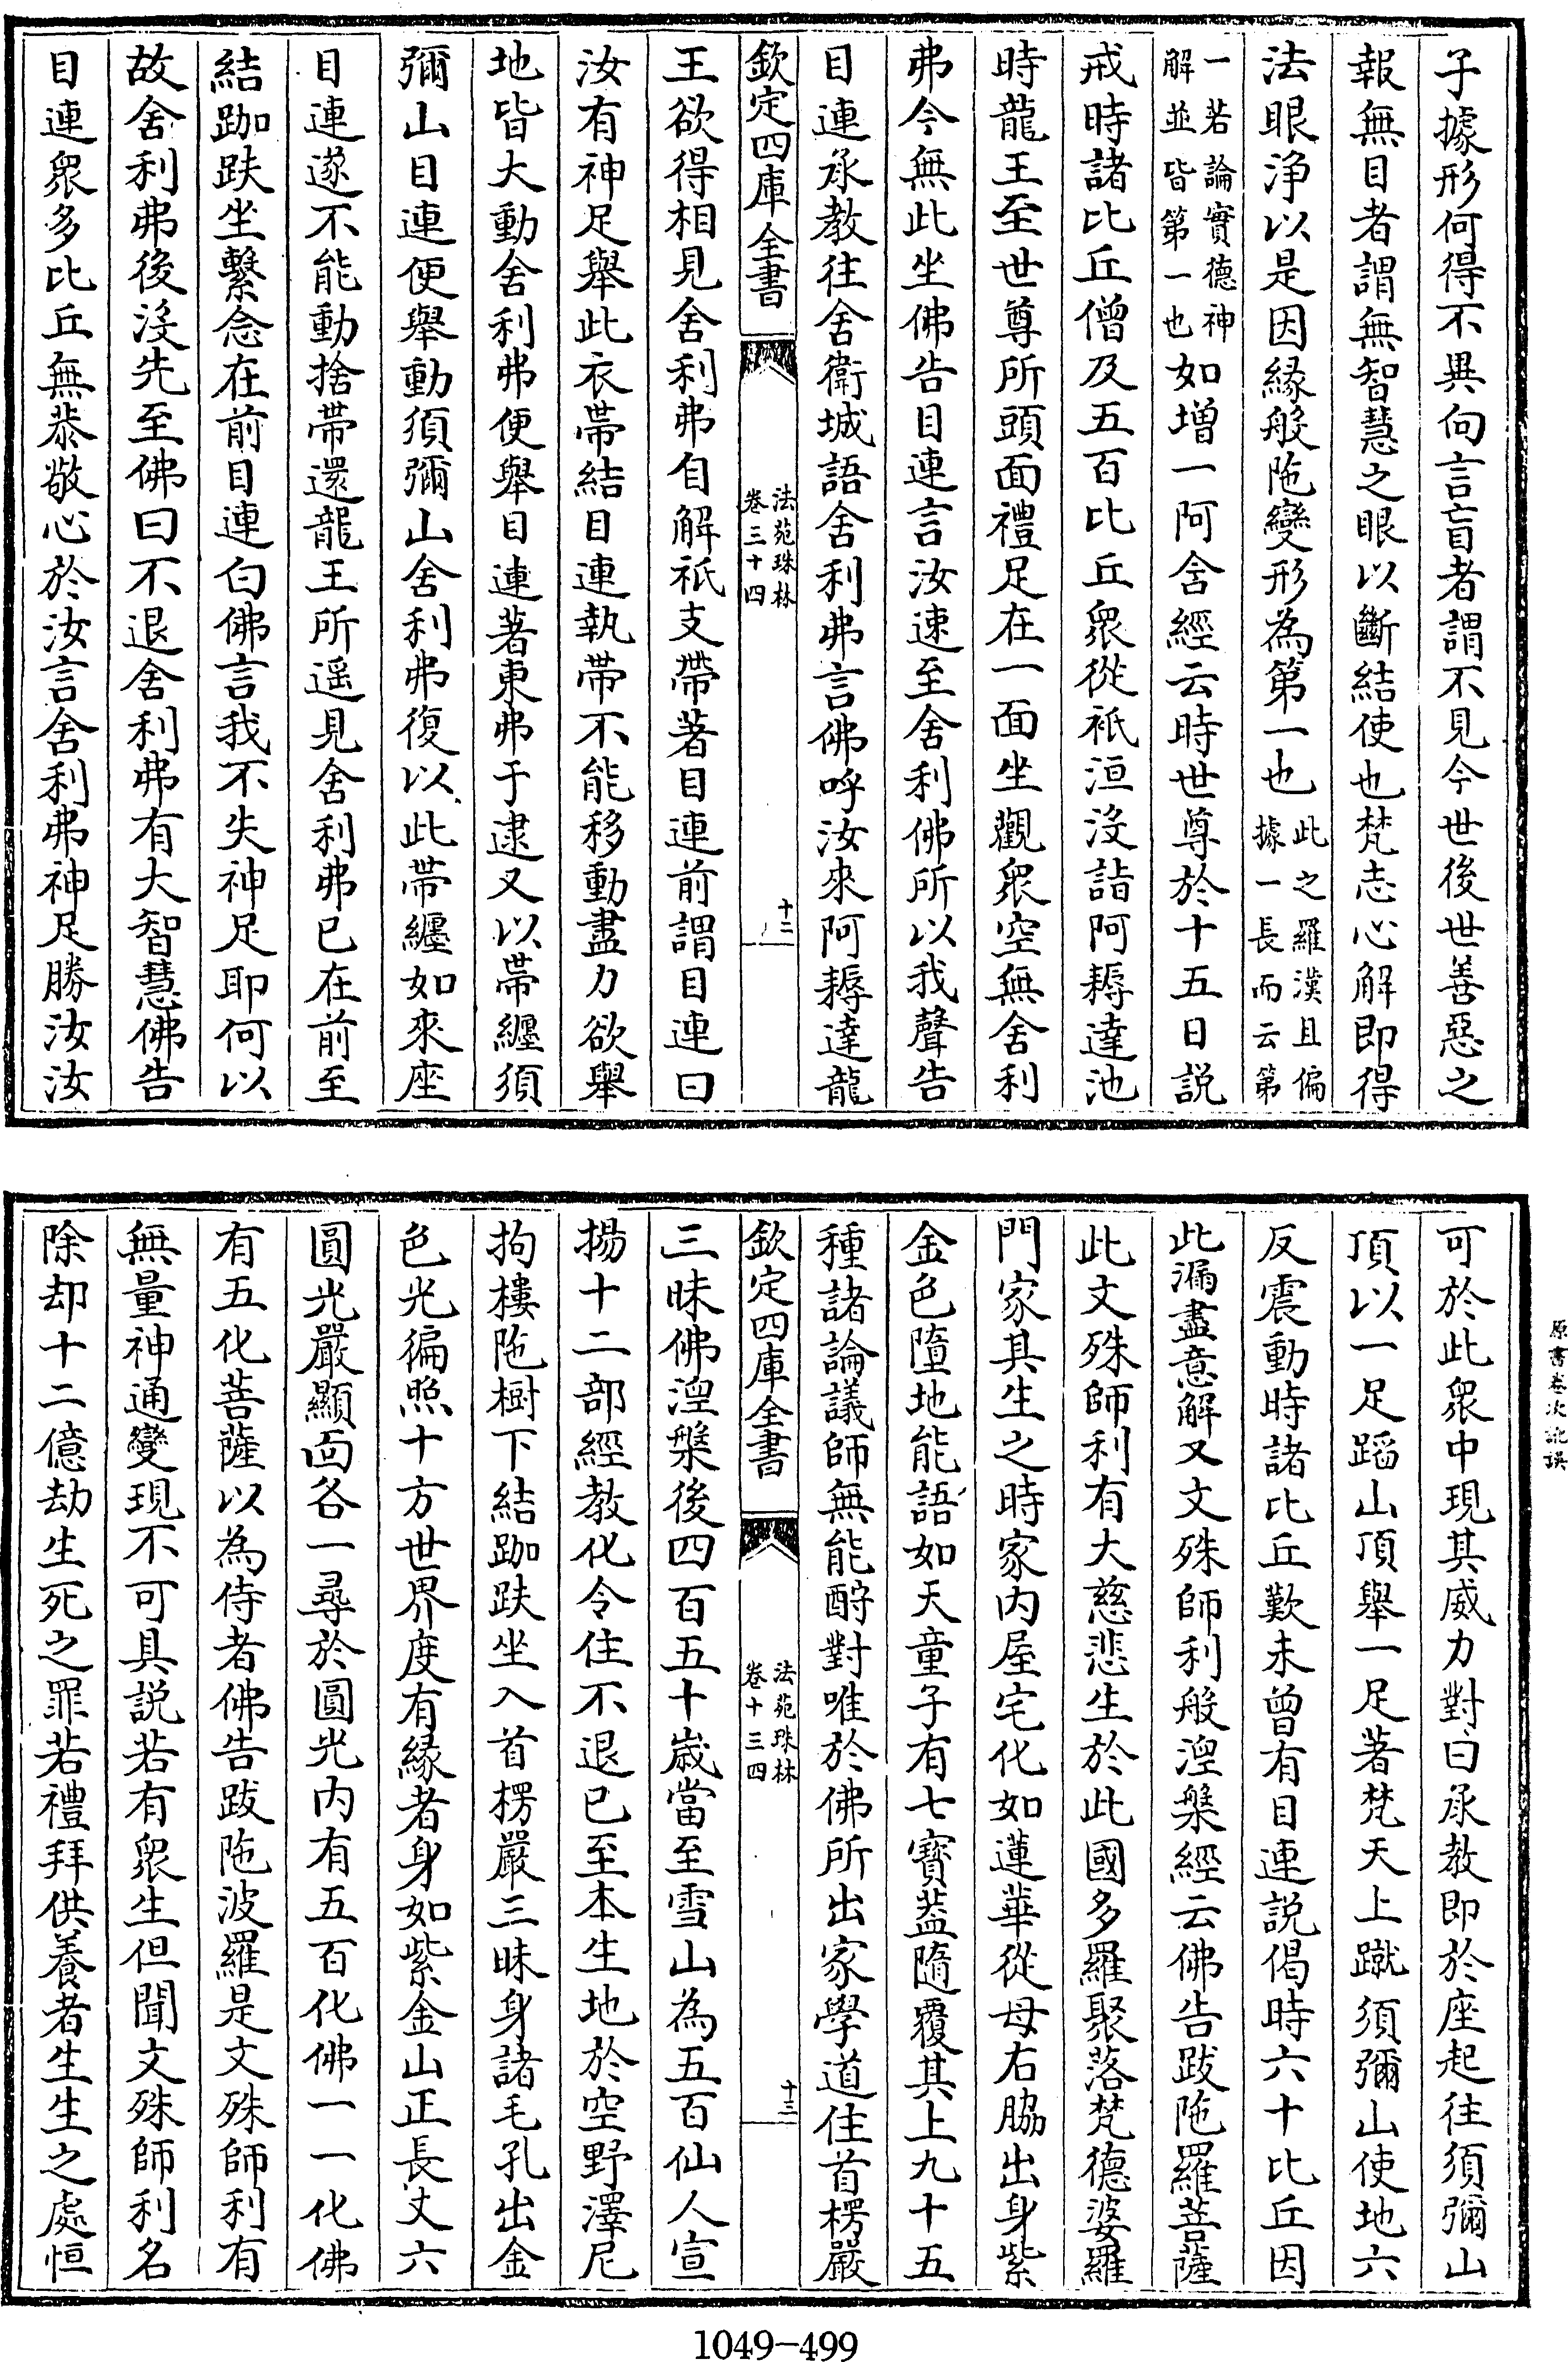 子據形何得不異向言盲者謂不見今世後世善惡之
報無目者謂無智慧之眼以斷結使也梵志心解即得
法眼淨以是因緣般陁變形為第一也此之羅漢且偏據一長而云第
一若論實德神解並皆第一也如増一阿含經云時世尊於十五日説
戒時諸比丘僧及五百比丘衆從祇洹沒詣阿耨達池
時龍王至世尊所頭面禮足在一面坐觀衆空無舍利
弗今無此坐佛告目連言汝速至舍利佛所以我聲告
目連承教往舍衛城語舍利弗言佛呼汝來阿耨達龍
欽定四庫全書
法苑珠林
卷三十四
十二
王欲得相見舍利弗自解祇支帶著目連前謂目連曰
汝有神足舉此衣帶結目連執帶不能移動盡力欲舉
地皆大動舍利弗便舉目連著東弗于逮又以帶纏須
彌山目連便舉動須彌山舍利弗復以此帶纏如來座
目連遂不能動捨帶還龍王所遥見舍利弗已在前至
結跏趺坐繫念在前目連白佛言我不失神足耶何以
故舍利弗後沒先至佛曰不退舍利弗有大智慧佛告
目連衆多比丘無恭敬心於汝言舍利弗神足勝汝汝
可於此衆中現其威力對曰承教即於座起往須彌山
頂以一足蹈山頂舉一足著梵天上蹴須彌山使地六
反震動時諸比丘歎未曾有目連説偈時六十比丘因
此漏盡意解又文殊師利般湼槃經云佛告跋陁羅菩薩
此文殊師利有大慈悲生於此國多羅聚落梵德婆羅
門家其生之時家内屋宅化如蓮華從母右脇出身紫
金色墮地能語如天童子有七寶葢隨覆其上九十五
種諸論議師無能酧對唯於佛所出家學道住首楞嚴
欽定四庫全書
法苑珠林
卷十三四
十三
三昧佛湼槃後四百五十歳當至雪山為五百仙人宣
揚十二部經教化令住不退已至本生地於空野澤尼
拘樓陁樹下結跏趺坐入首楞嚴三昧身諸毛孔出金
色光徧照十方世界度有緣者身如紫金山正長丈六
圓光嚴顯面各一尋於圓光内有五百化佛一一化佛
有五化菩薩以為侍者佛告跋陁波羅是文殊師利有
無量神通變現不可具説若有衆生但聞文殊師利名
除却十二億劫生死之罪若禮拜供養者生生之處恒
原書卷次訛誤
1049-499